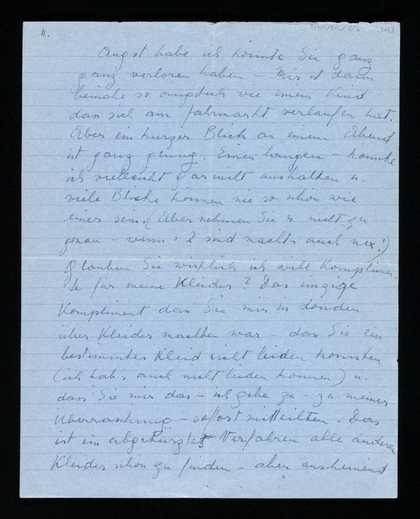 II.
Angst habe ich könnte Sie ganz
ganz verloren haben – mir ist dann
beinahe so ängstlich wie einem Kind
das sich am Jahrmarkt verlaufen hat.
Aber ein kurzer Blick an einem Abend
ist ganz genug. Einen langen – könnte
ich vielleicht gar nicht aushalten u.
viele Blicke können nie so schön wie
einer sein. (Aber nehmen Sie's nicht zu
genau – wenn's 2 sind macht's auch nix!)
Glauben Sie wirklich ich will Komplimen-
te für meine Kleider? Das einzige
Kompliment das Sie mir in London
über Kleider machten war – dass Sie ein
bestimmtes Kleid nicht leiden konnten
(ich hab's auch nicht leiden können) u.
dass Sie mir das – ich gebe zu – zu meiner
Überraschung – sofort mitteilten. Das
ist ein abgekürztes Verfahren alle anderen
Kleider schön zu finden – aber anscheinend